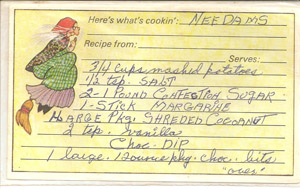 Here's what's cookin': NEEDAMS
Recipe from:
Serves:
3/4 Cups mashed potatoes
1/2 tsp. SALT
2-1 POUND CONFECTION SUGAR
1-STICK MARGARINE
LARGE PKg. SHREDED COCOANUT
2 tsp. vanilla
Choc-DIP
1 large. 12 ounce pkg. choc. bits
"over"